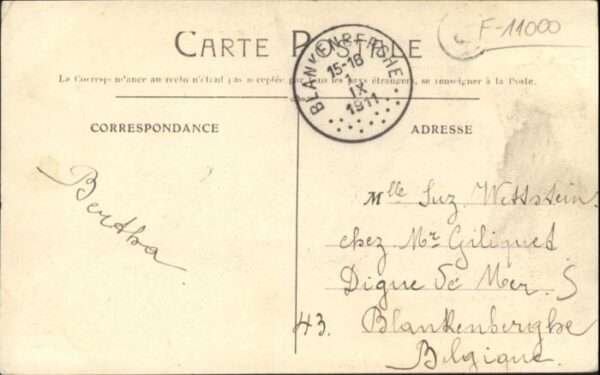 F-11000
CARTE POSTALE
BLANKENBERGHE
15-16
1
IX
1911
La Correspondance au recto n'étant pas acceptée par tous les pays étrangers, se renseigner à la Poste.
CORRESPONDANCE
ADRESSE
Bertha
Mlle Suz. Wettstein.
chez Mr Giliquet
Digue de Mer. S
43. Blankenberghe
Belgique.